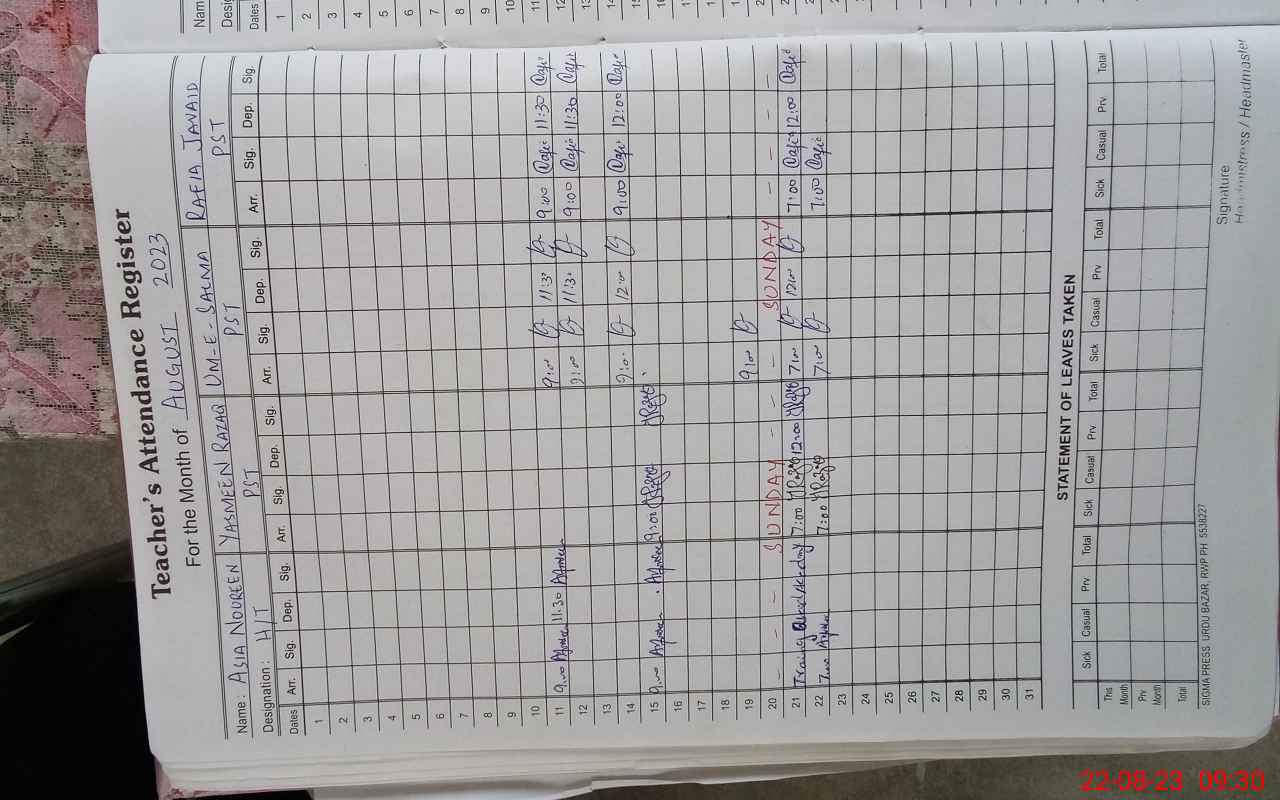 Teacher's Attendance Register
For the Month of AUGUST 2023
Name: ASIA NOUREEN YASMEEN RAZAQ UM-E-SALMA RAFIA JAVAID
Designation: H/T PST PST PST
Dates Arr. Sig. Dep. Sig. Arr. Sig. Dep. Sig. Arr. Sig. Dep. Sig. Arr. Sig. Dep. Sig.
1
2
3
4
5
6
7
8
9
10
11 9:00 11:30 9:00 11:30 9:00 11:30
12 9:00 11:30 9:00 11:30
13
14 9:00 12:00 9:00 12:00
15 9:00 9:00
16
17
18
19 9:00
20 - - - - SUNDAY - - - SUNDAY - - - -
21 7:00 12:00 7:00 12:00 7:00 12:00
22 7:00 7:00 7:00 7:00
23
24
25
26
27
28
29
30
31
STATEMENT OF LEAVES TAKEN
Sick Casual Prv Total Sick Casual Prv Total Sick Casual Prv Total Sick Casual Prv Total
This Month
Prv Month
Total
SIGMA PRESS URDU BAZAR, RWP PH 5538227
Signature
Headmistress / Headmaster
22-08-23 09:30